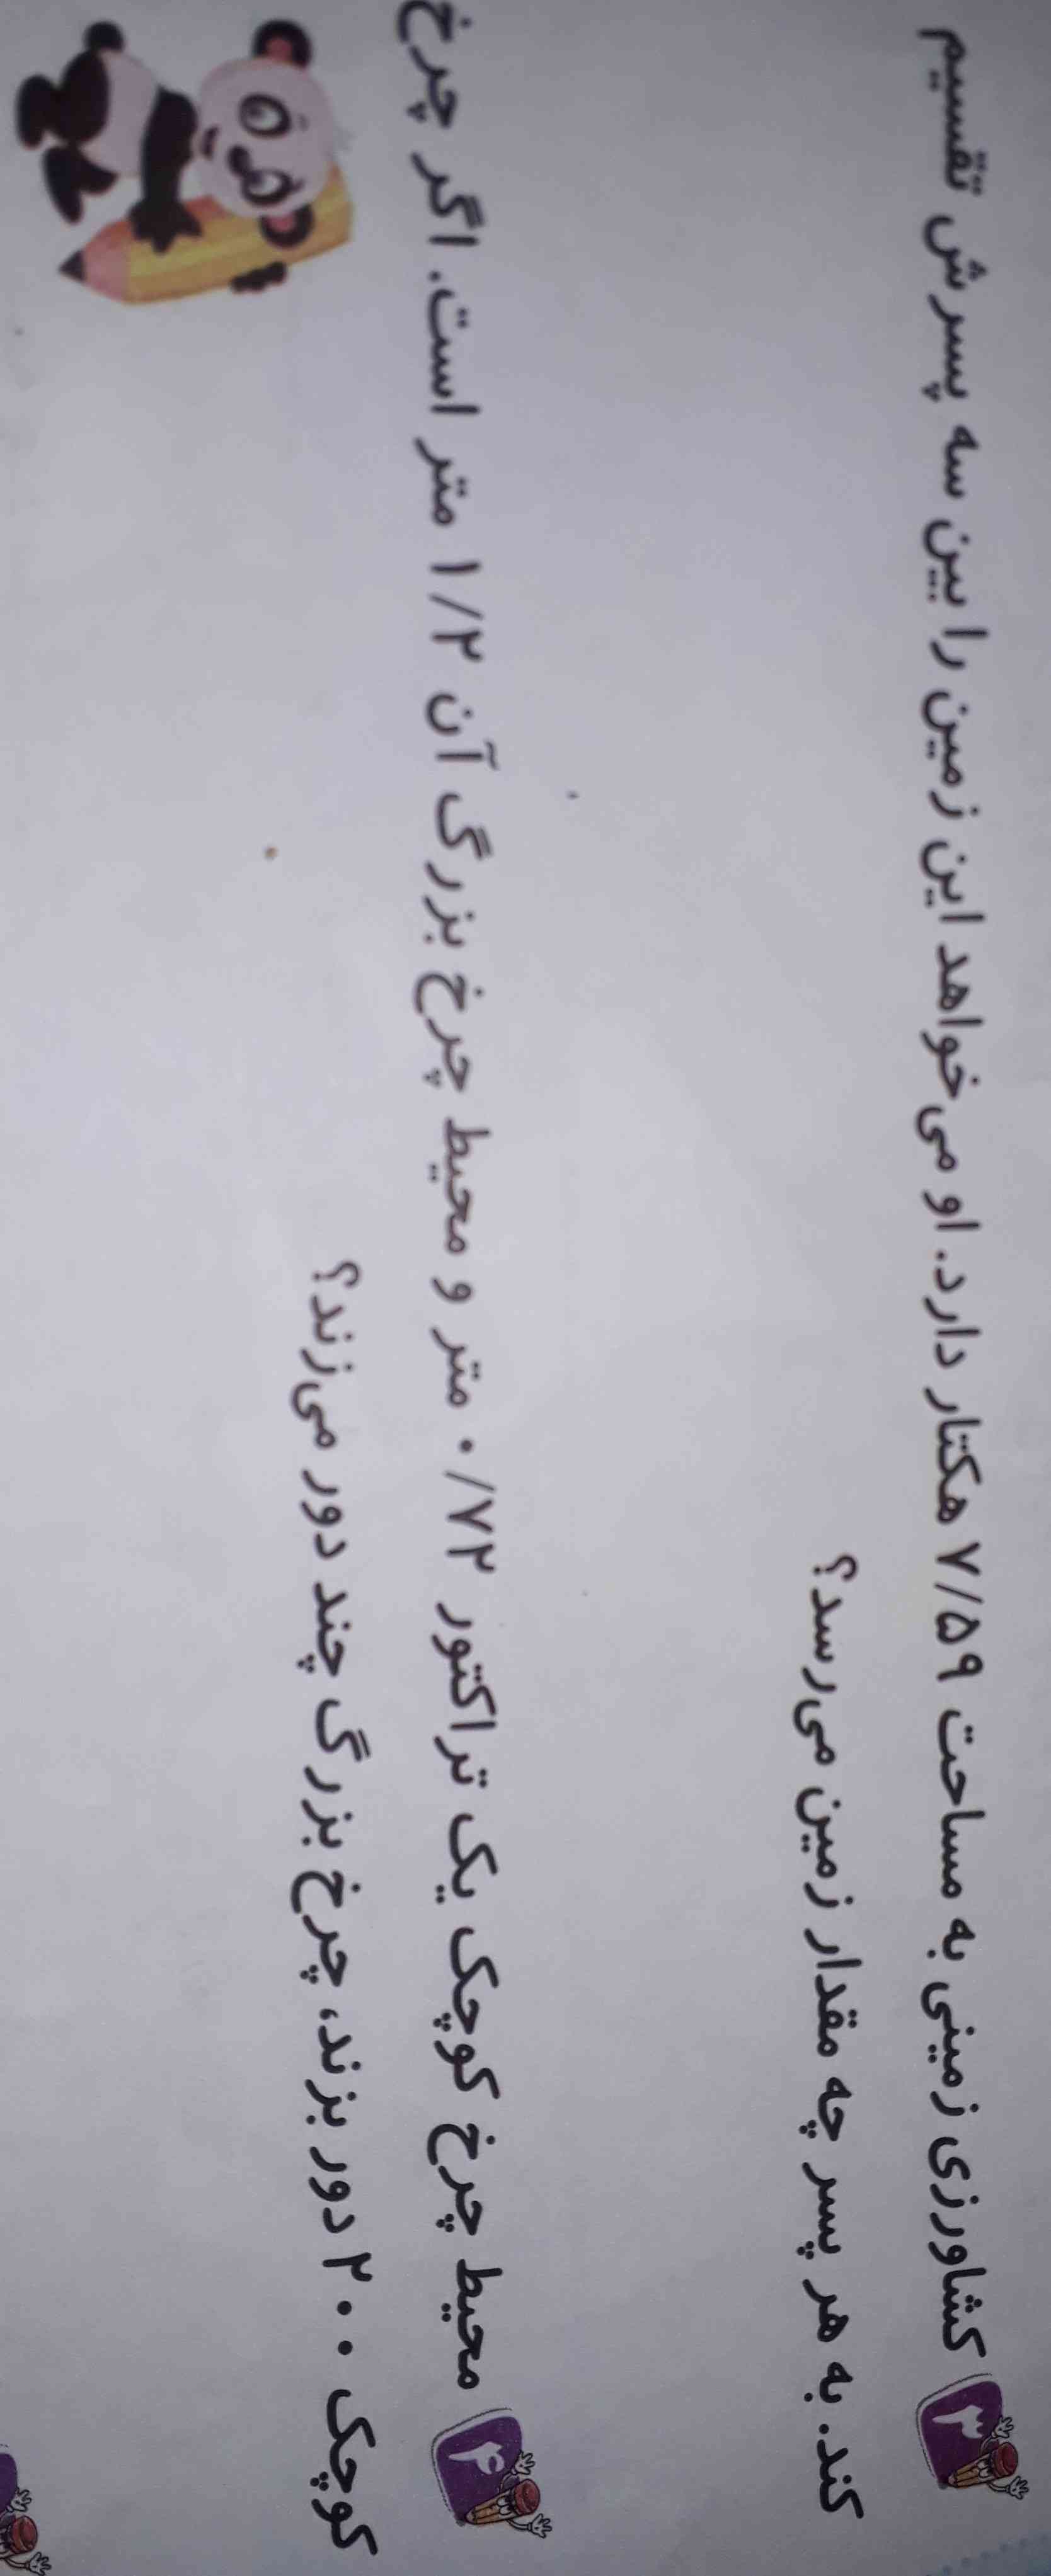 ۳ کشاورزی زمینی به مساحت ۷/۵۹ هکتار دارد. او می‌خواهد این زمین را بین سه پسرش تقسیم
کند. به هر پسر چه مقدار زمین می‌رسد؟
۴ محیط چرخ کوچک یک تراکتور ۰/۷۲ متر و محیط چرخ بزرگ آن ۱/۲ متر است. اگر چرخ
کوچک ۲۰۰ دور بزند، چرخ بزرگ چند دور می‌زند؟